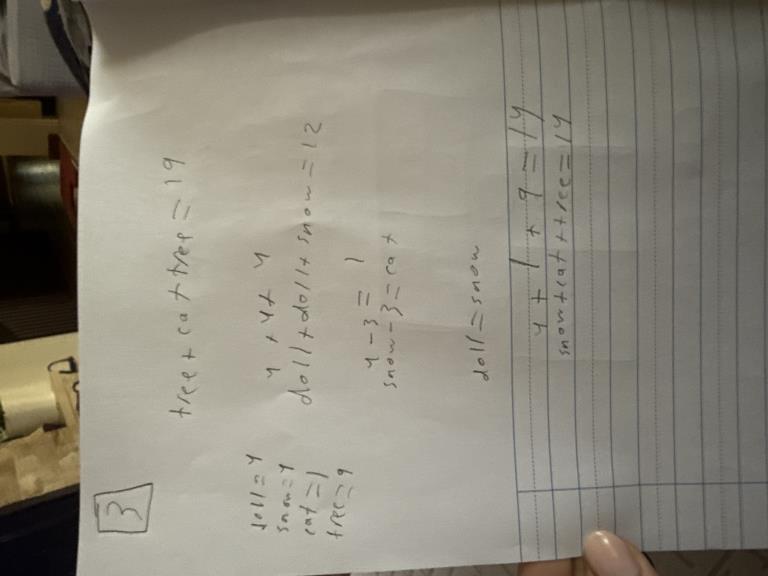 3
tree + cat + tree = 19
doll = 4
snow = 4
cat = 1
tree = 9
4 + 4 + 4
doll + doll + snow = 12
4 - 3 = 1
snow - 3 = cat
doll = snow
4 + 1 + 9 = 14
snow + cat + tree = 14